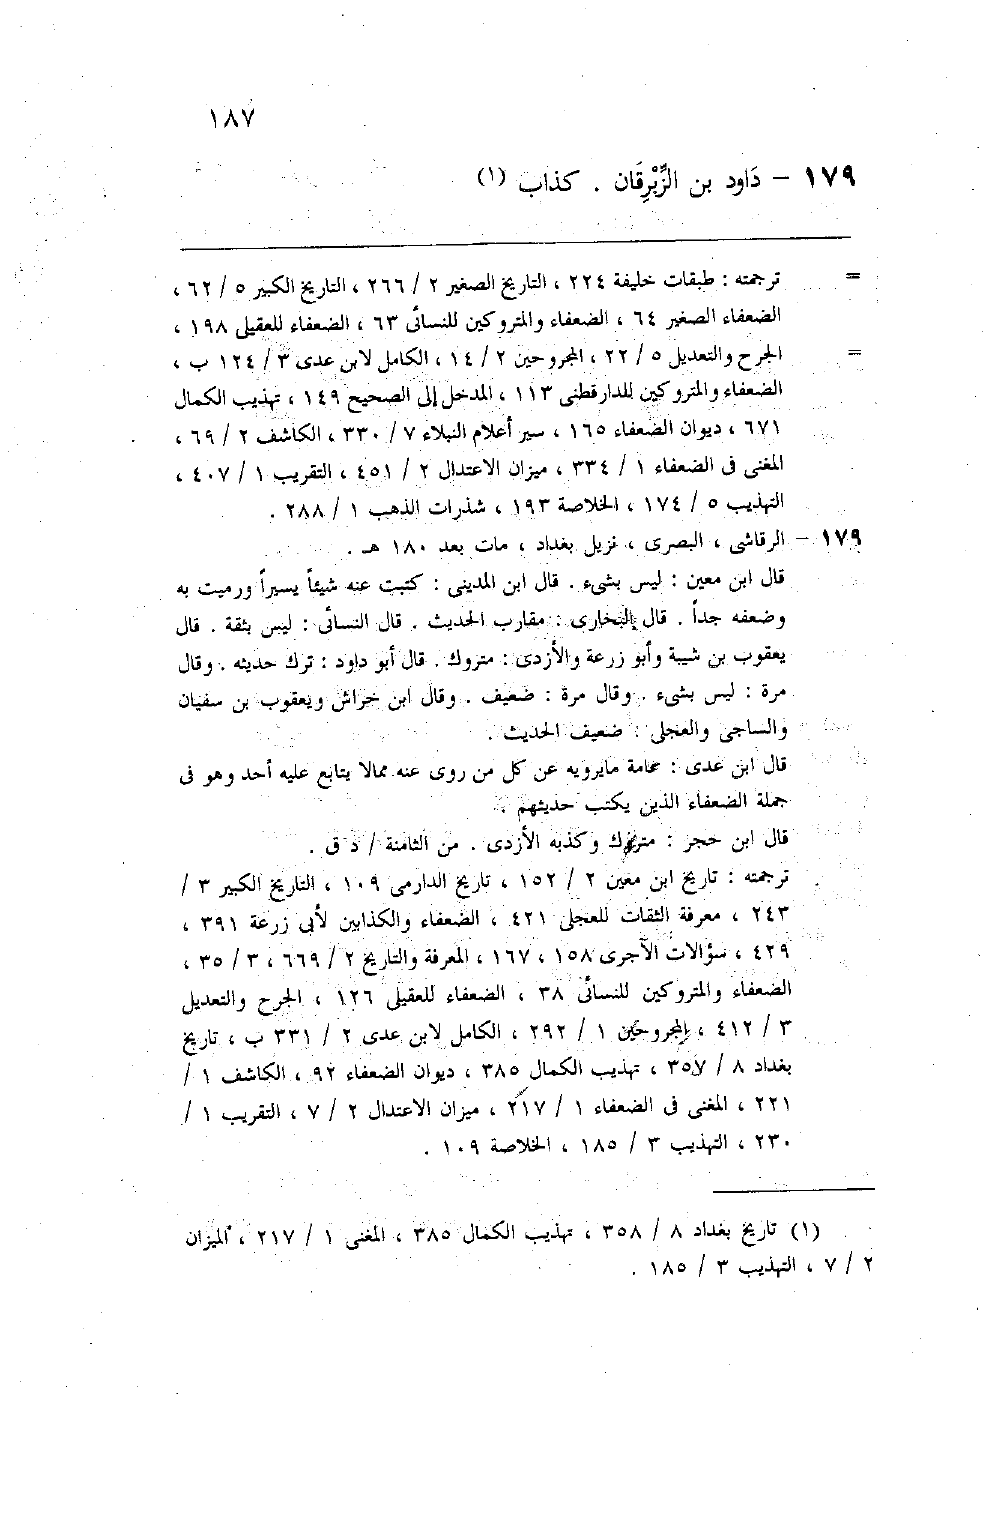 ١٨٧
١٧٩ - دَاود بن الزِّبْرِقَان . كذاب (١)
= ترجمته : طبقات خليفة ٢٢٤ ، التاريخ الصغير ٢ / ٢٦٦ ، التاريخ الكبير ٥ / ٦٢ ،
الضعفاء الصغير ٦٤ ، الضعفاء والمتروكين للنسائى ٦٣ ، الضعفاء للعقيلى ١٩٨ ،
= الجرح والتعديل ٥ / ٢٢ ، المجروحين ٢ / ١٤ ، الكامل لابن عدى ٣ / ١٢٤ ب ،
الضعفاء والمتروكين للدارقطنى ١١٣ ، المدخل إلى الصحيح ١٤٩ ، تهذيب الكمال
٦٧١ ، ديوان الضعفاء ١٦٥ ، سير أعلام النبلاء ٧ / ٣٣٠ ، الكاشف ٢ / ٦٩ ،
المغنى فى الضعفاء ١ / ٣٣٤ ، ميزان الاعتدال ٢ / ٤٥١ ، التقريب ١ / ٤٠٧ ،
التهذيب ٥ / ١٧٤ ، الخلاصة ١٩٣ ، شذرات الذهب ١ / ٢٨٨ .
١٧٩ - الرقاشى ، البصرى ، نزيل بغداد ، مات بعد ١٨٠ هـ .
قال ابن معين : ليس بشىء . قال ابن المدينى : كتبت عنه شيئاً يسيراً ورميت به
وضعفه جداً . قال البخارى : مقارب الحديث . قال النسائى : ليس بثقة . قال
يعقوب بن شيبة وأبو زرعة والأزدى : متروك . قال أبو داود : ترك حديثه . وقال
مرة : ليس بشىء . وقال مرة : ضعيف . وقال ابن خراش ويعقوب بن سفيان
والساجى والعجلى : ضعيف الحديث .
قال ابن عدى : عامة مايرويه عن كل من روى عنه ممالا يتابع عليه أحد وهو فى
جملة الضعفاء الذين يكتب حديثهم .
قال ابن حجر : متروك وكذبه الأزدى . من الثامنة / د ق .
ترجمته : تاريخ ابن معين ٢ / ١٥٢ ، تاريخ الدارمى ١٠٩ ، التاريخ الكبير ٣ /
٢٤٣ ، معرفة الثقات للعجلى ٤٢١ ، الضعفاء والكذابين لأبى زرعة ٣٩١ ،
٤٢٩ ، سؤالات الآجرى ١٥٨ ، ١٦٧ ، المعرفة والتاريخ ٢ / ٦٦٩ ، ٣ / ٣٥ ،
الضعفاء والمتروكين للنسائى ٣٨ ، الضعفاء للعقيلى ١٢٦ ، الجرح والتعديل
٣ / ٤١٢ ، المجروحين ١ / ٢٩٢ ، الكامل لابن عدى ٢ / ٣٣١ ب ، تاريخ
بغداد ٨ / ٣٥٧ ، تهذيب الكمال ٣٨٥ ، ديوان الضعفاء ٩٢ ، الكاشف ١ /
٢٢١ ، المغنى فى الضعفاء ١ / ٢١٧ ، ميزان الاعتدال ٢ / ٧ ، التقريب ١ /
٢٣٠ ، التهذيب ٣ / ١٨٥ ، الخلاصة ١٠٩ .
(١) تاريخ بغداد ٨ / ٣٥٨ ، تهذيب الكمال ٣٨٥ ، المغنى ١ / ٢١٧ ، الميزان
٢ / ٧ ، التهذيب ٣ / ١٨٥ .